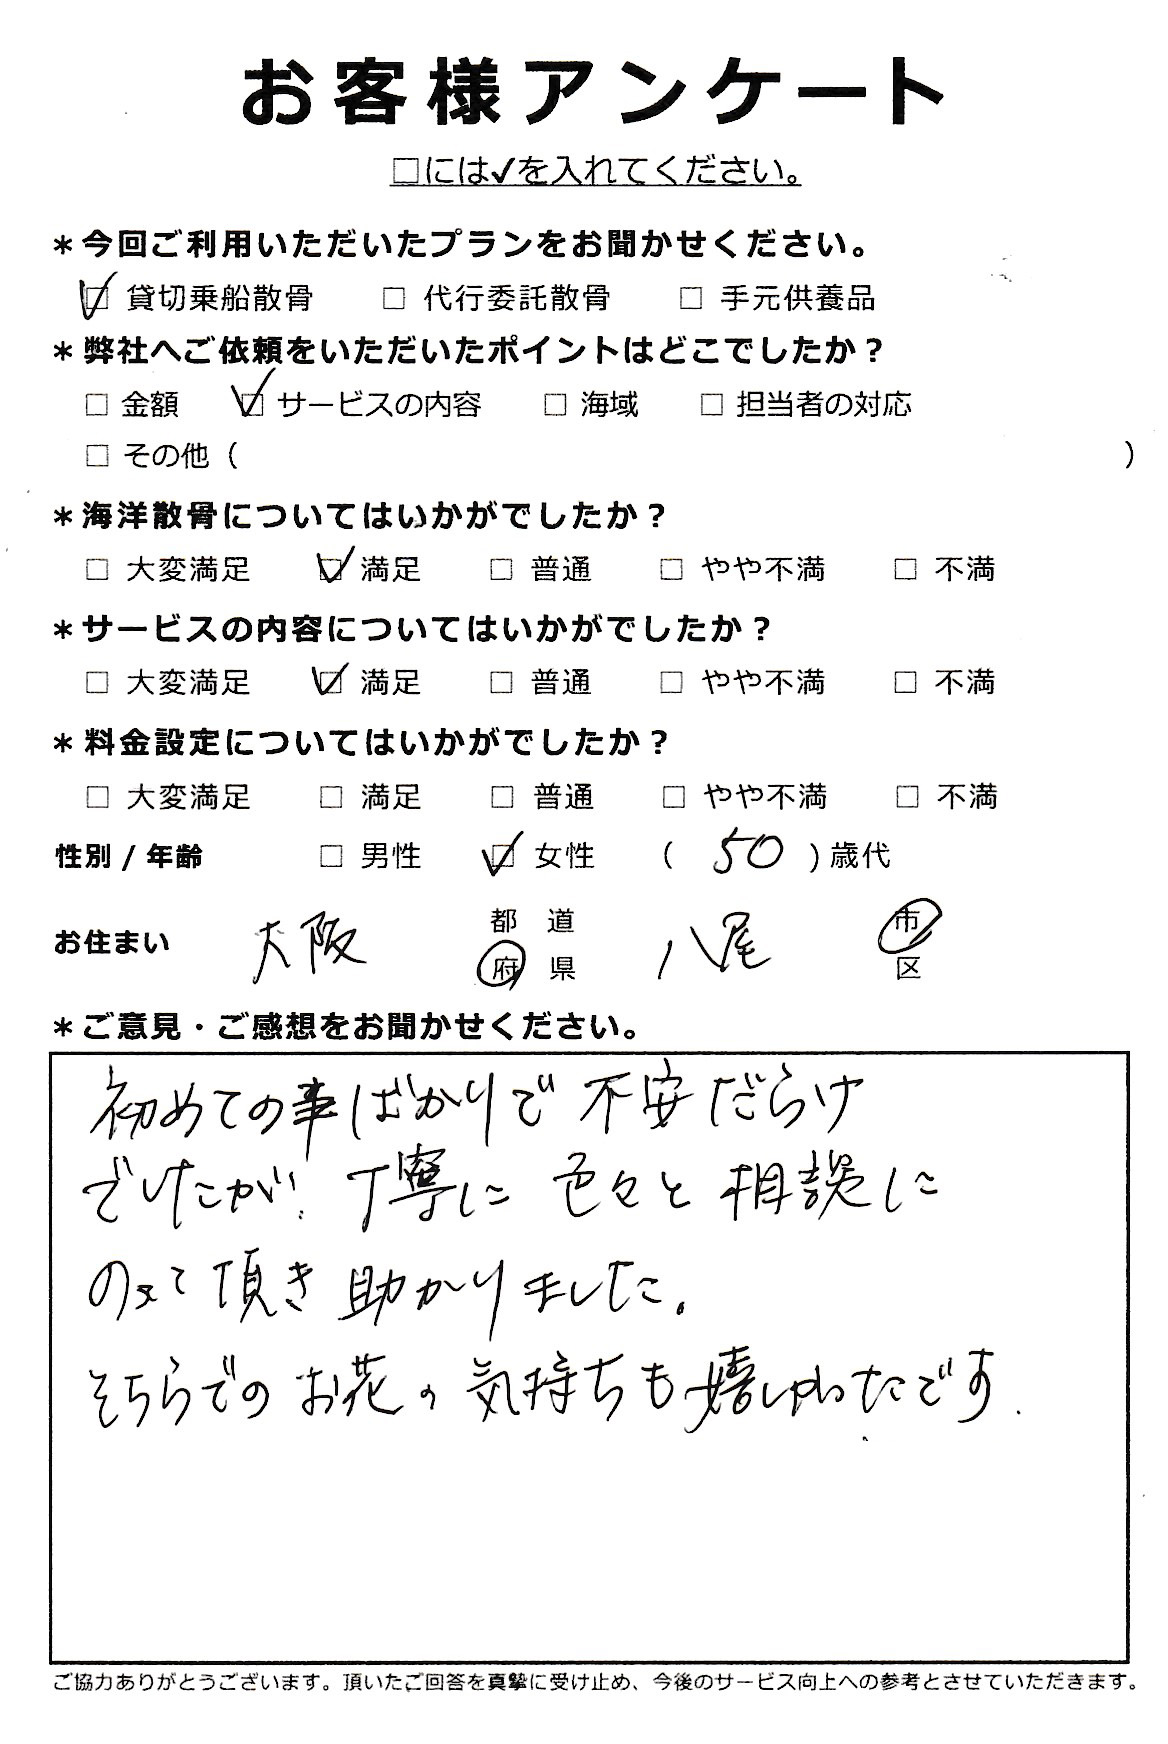 お客様アンケート
□には✓を入れてください。
＊今回ご利用いただいたプランをお聞かせください。
☑ 貸切乗船散骨 □ 代行委託散骨 □ 手元供養品
＊弊社へご依頼をいただいたポイントはどこでしたか？
□ 金額 ☑ サービスの内容 □ 海域 □ 担当者の対応
□ その他（ ）
＊海洋散骨についてはいかがでしたか？
□ 大変満足 ☑ 満足 □ 普通 □ やや不満 □ 不満
＊サービスの内容についてはいかがでしたか？
□ 大変満足 ☑ 満足 □ 普通 □ やや不満 □ 不満
＊料金設定についてはいかがでしたか？
□ 大変満足 □ 満足 □ 普通 □ やや不満 □ 不満
性別 / 年齢 □ 男性 ☑ 女性 （ 50 ）歳代
お住まい 大阪 都 道 府 県 八尾 市 区
＊ご意見・ご感想をお聞かせください。
初めての事ばかりで 不安だらけ
でしたが、丁寧に 色々と 相談に
のって 頂き 助かりました。
そちらでの お花の 気持ちも 嬉しかったです.
ご協力ありがとうございます。頂いたご回答を真摯に受け止め、今後のサービス向上への参考とさせていただきます。